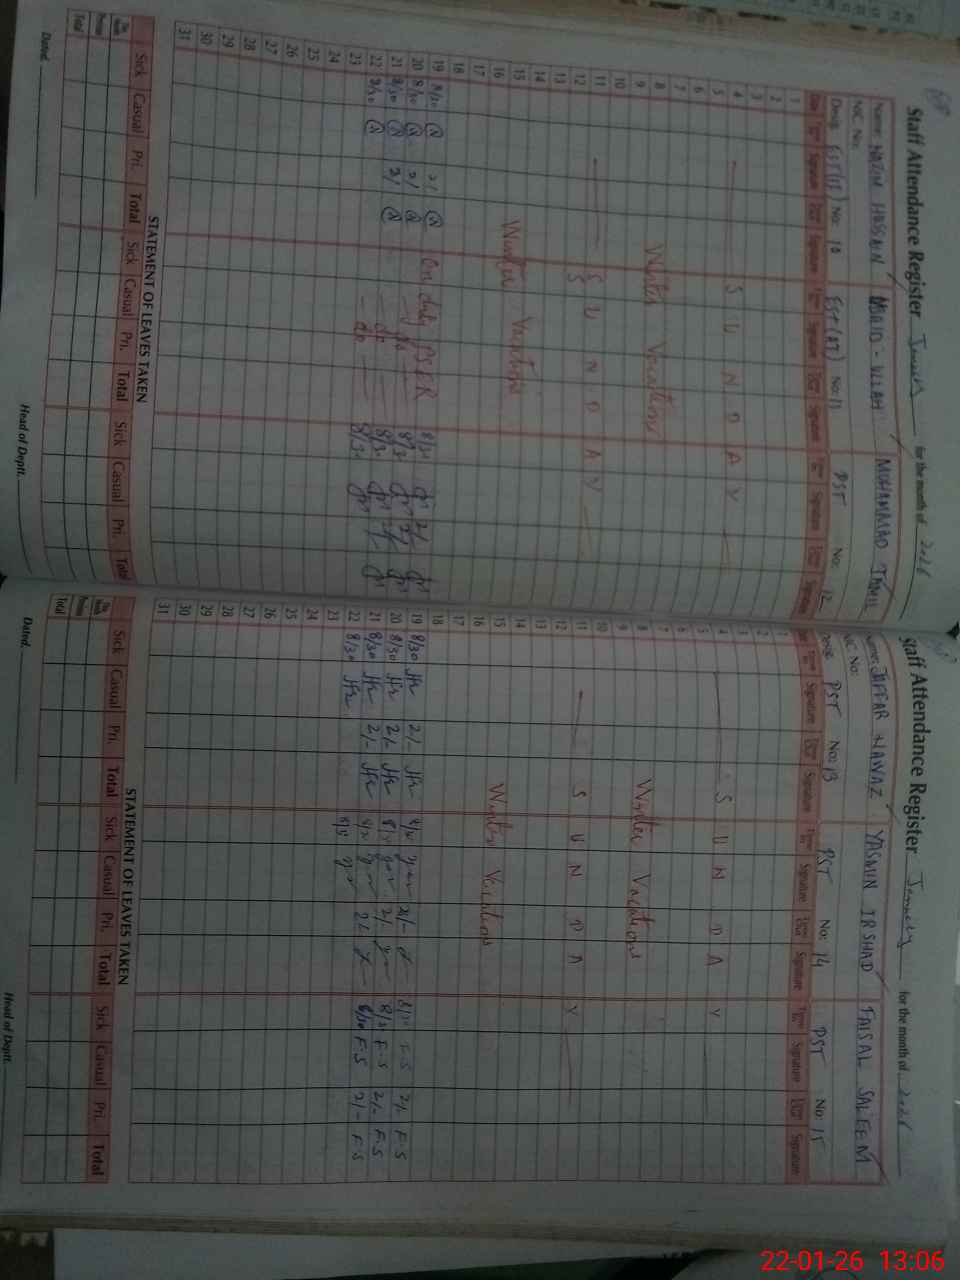 Staff Attendance Register January for the month of 2026
Name: HUSSAIN - ULLAH MUHAMMAD JAMIL
NIC No:
Desig. No: 10 EST (AT) No: 11 PST No: 12
Date Time In Signature Time Out Signature Time In Signature Time Out Signature Time In Signature Time Out Signature
1
2
3
4 S U N D A Y
5
6
7
8 Winter Vacations
9
10
11 S U N D A Y
12
13
14
15 Winter Vacations
16
17
18
19 8/30 2/ On duty 8/30 2/-
20 8/30 2/ do 8/30 2/-
21 8/30 2/ do 8/30 2/-
22 8/30 do 8/30
23
24
25
26
27
28
29
30
31
STATEMENT OF LEAVES TAKEN
Sick Casual Pri. Total Sick Casual Pri. Total Sick Casual Pri. Total
This Month
Previous
Total
Dated. Head of Deptt.
Staff Attendance Register January for the month of 2026
Name: JAFFAR NAWAZ YASMIN IRSHAD FAISAL SALEEM
NIC No:
Desig. PST No: 13 PST No: 14 PST No: 15
Date Time In Signature Time Out Signature Time In Signature Time Out Signature Time In Signature Time Out Signature
1
2
3
4 S U N D A Y
5
6
7
8 Winter Vacations
9
10
11 S U N D A Y
12
13
14
15 Winter Vacations
16
17
18
19 8/30 2/- 8/30 2/- 8/30 F.S 2/- F.S
20 8/30 2/- 8/30 2/- 8/30 F.S 2/- F.S
21 8/30 2/- 8/30 2/- 8/30 F.S 2/- F.S
22 8/30
23
24
25
26
27
28
29
30
31
STATEMENT OF LEAVES TAKEN
Sick Casual Pri. Total Sick Casual Pri. Total Sick Casual Pri. Total
This Month
Previous
Total
Dated. Head of Deptt.
22-01-26 13:06